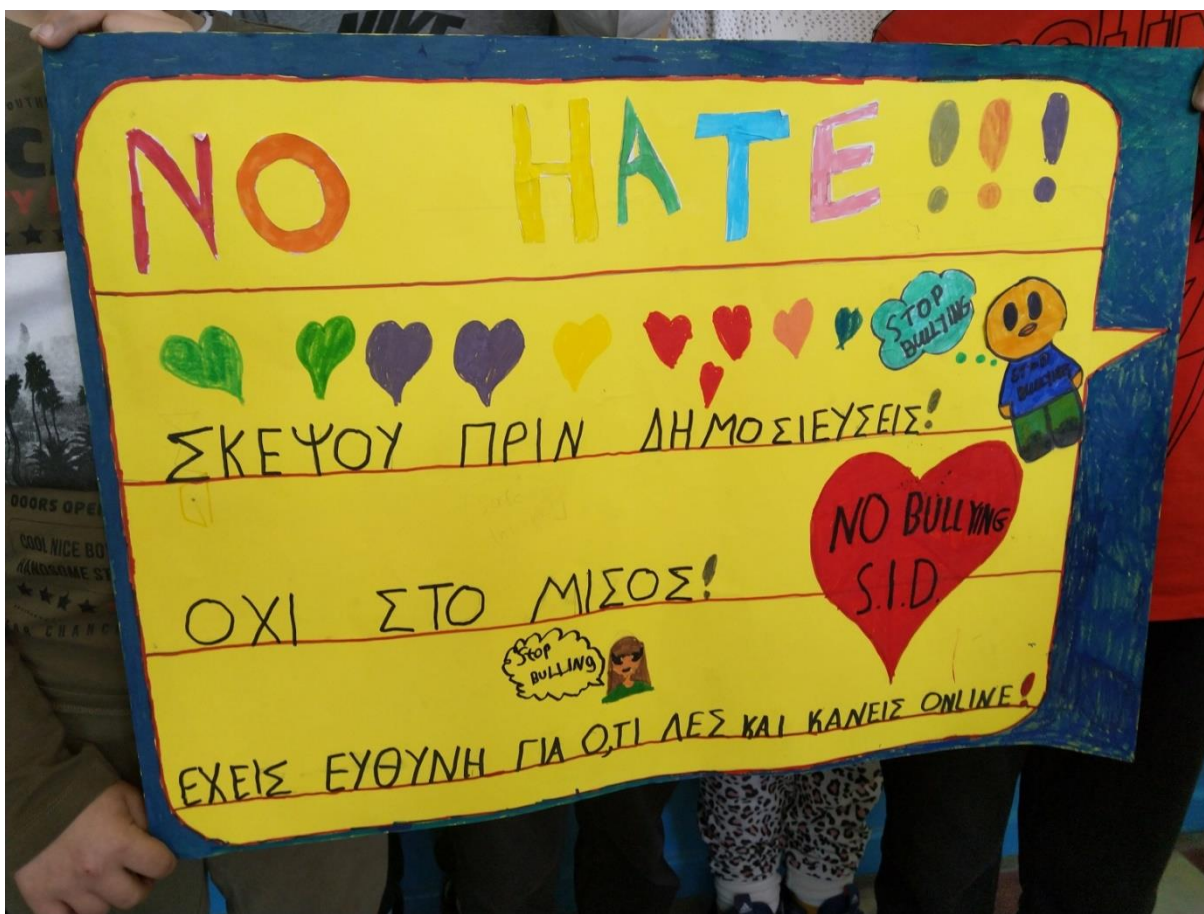 NIKE
NO HATE!!!
STOP
BULLYING
ΣΚΕΨΟΥ ΠΡΙΝ ΔΗΜΟΣΙΕΥΣΕΙΣ!
NO BULLYING
S.I.D.
ΟΧΙ ΣΤΟ ΜΙΣΟΣ!
Stop
BULLING
ΕΧΕΙΣ ΕΥΘΥΝΗ ΓΙΑ Ο,ΤΙ ΛΕΣ ΚΑΙ ΚΑΝΕΙΣ ONLINE!
DOORS OPE
COOL NICE BO
HANDSOME ST
CHANC